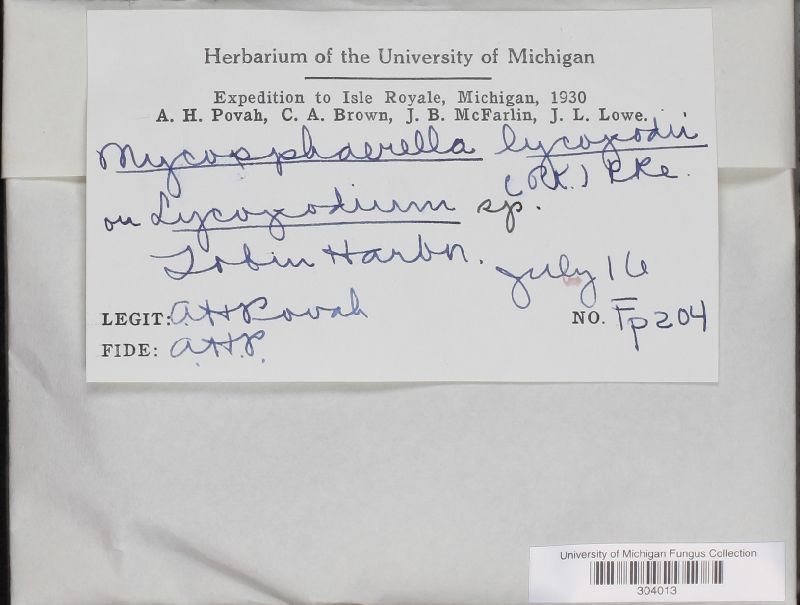 Herbarium of the University of Michigan
Expedition to Isle Royale, Michigan, 1930
A. H. Povah, C. A. Brown, J. B. McFarlin, J. L. Lowe.
Mycosphaerella lycopodii
(PK.) PKe.
on Lycopodium sp.
Tobin Harbor.
July 16
LEGIT: AHPovah
NO. Fp204
FIDE: A.H.P.
University of Michigan Fungus Collection
304013